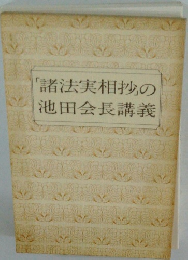 「諸法実相抄」の
池田会長講義